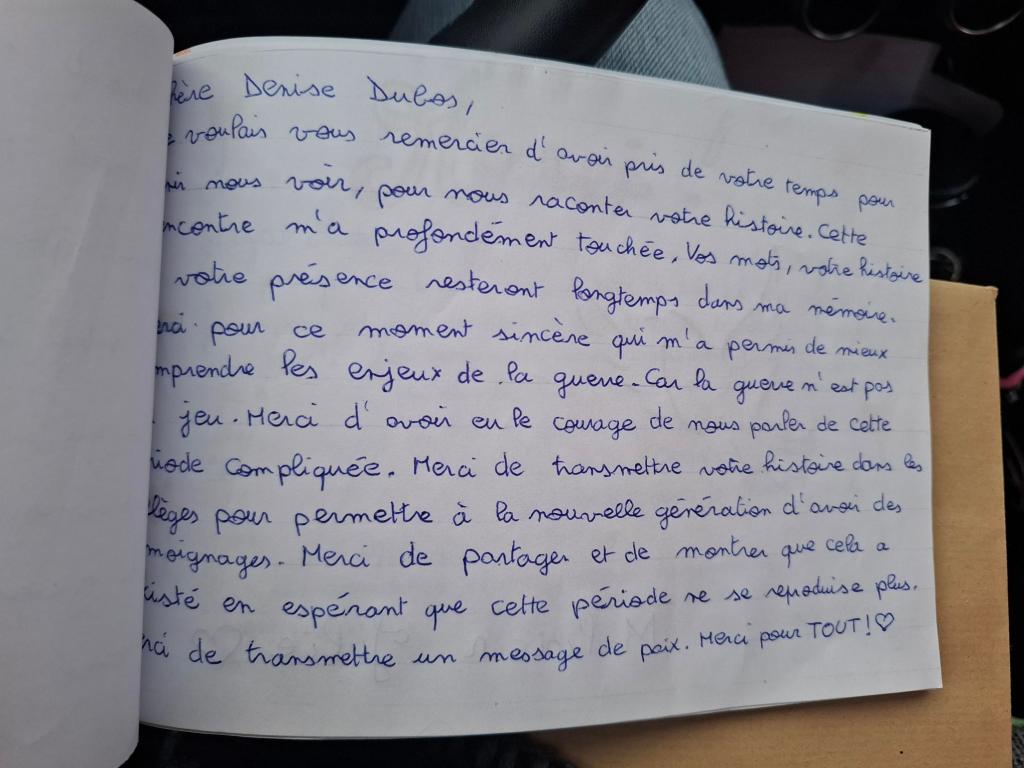 hère Denise Dubos,
e voulais vous remercier d'avoir pris de votre temps pour
ir nous voir, pour nous raconter votre histoire. Cette
ncontre m'a profondément touchée. Vos mots, votre histoire
votre présence resteront longtemps dans ma mémoire.
erci pour ce moment sincère qui m'a permis de mieux
mprendre les enjeux de la guerre. Car la guerre n'est pas
jeu. Merci d'avoir eu le courage de nous parler de cette
riode compliquée. Merci de transmettre votre histoire dans les
llèges pour permettre à la nouvelle génération d'avoir des
moignages. Merci de partager et de montrer que cela a
xisté en espérant que cette période ne se reproduise plus.
rci de transmettre un message de paix. Merci pour TOUT ! ♡